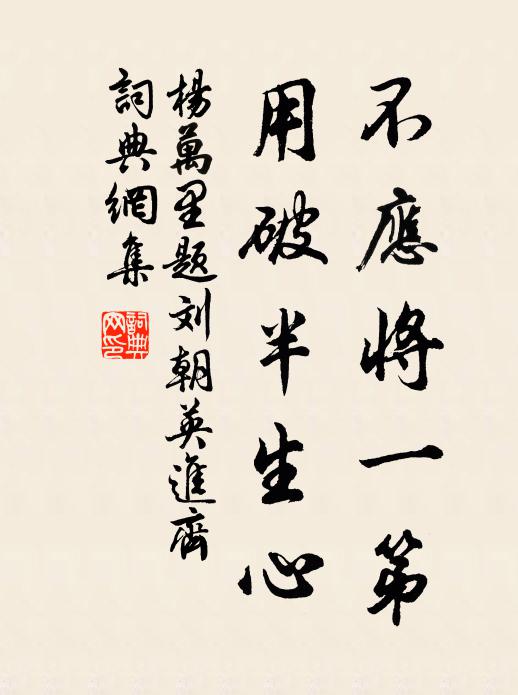 不應將一第
用破半生心
楊萬里題刘朝英進齋
詞典網集
詞典網印